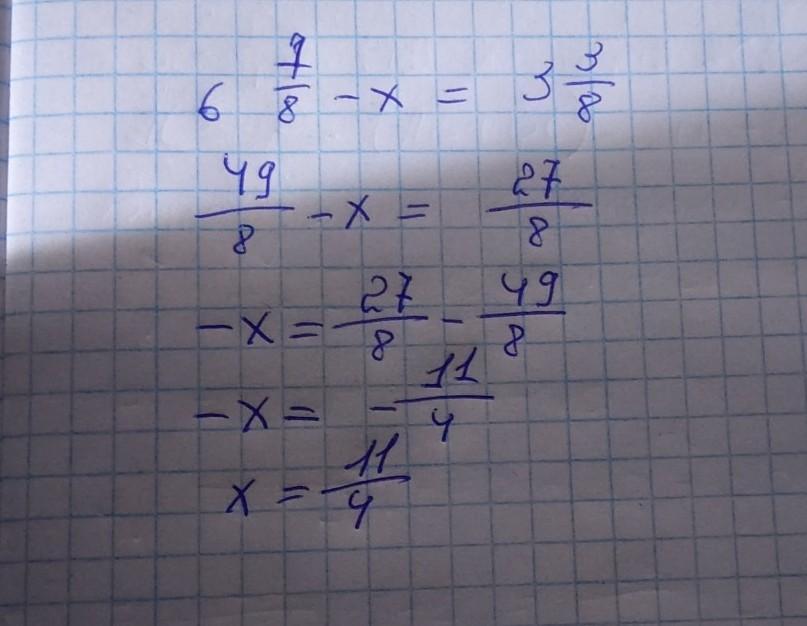 6 7/8 - x = 3 3/8
49/8 - x = 27/8
-x = 27/8 - 49/8
-x = - 11/4
x = 11/4